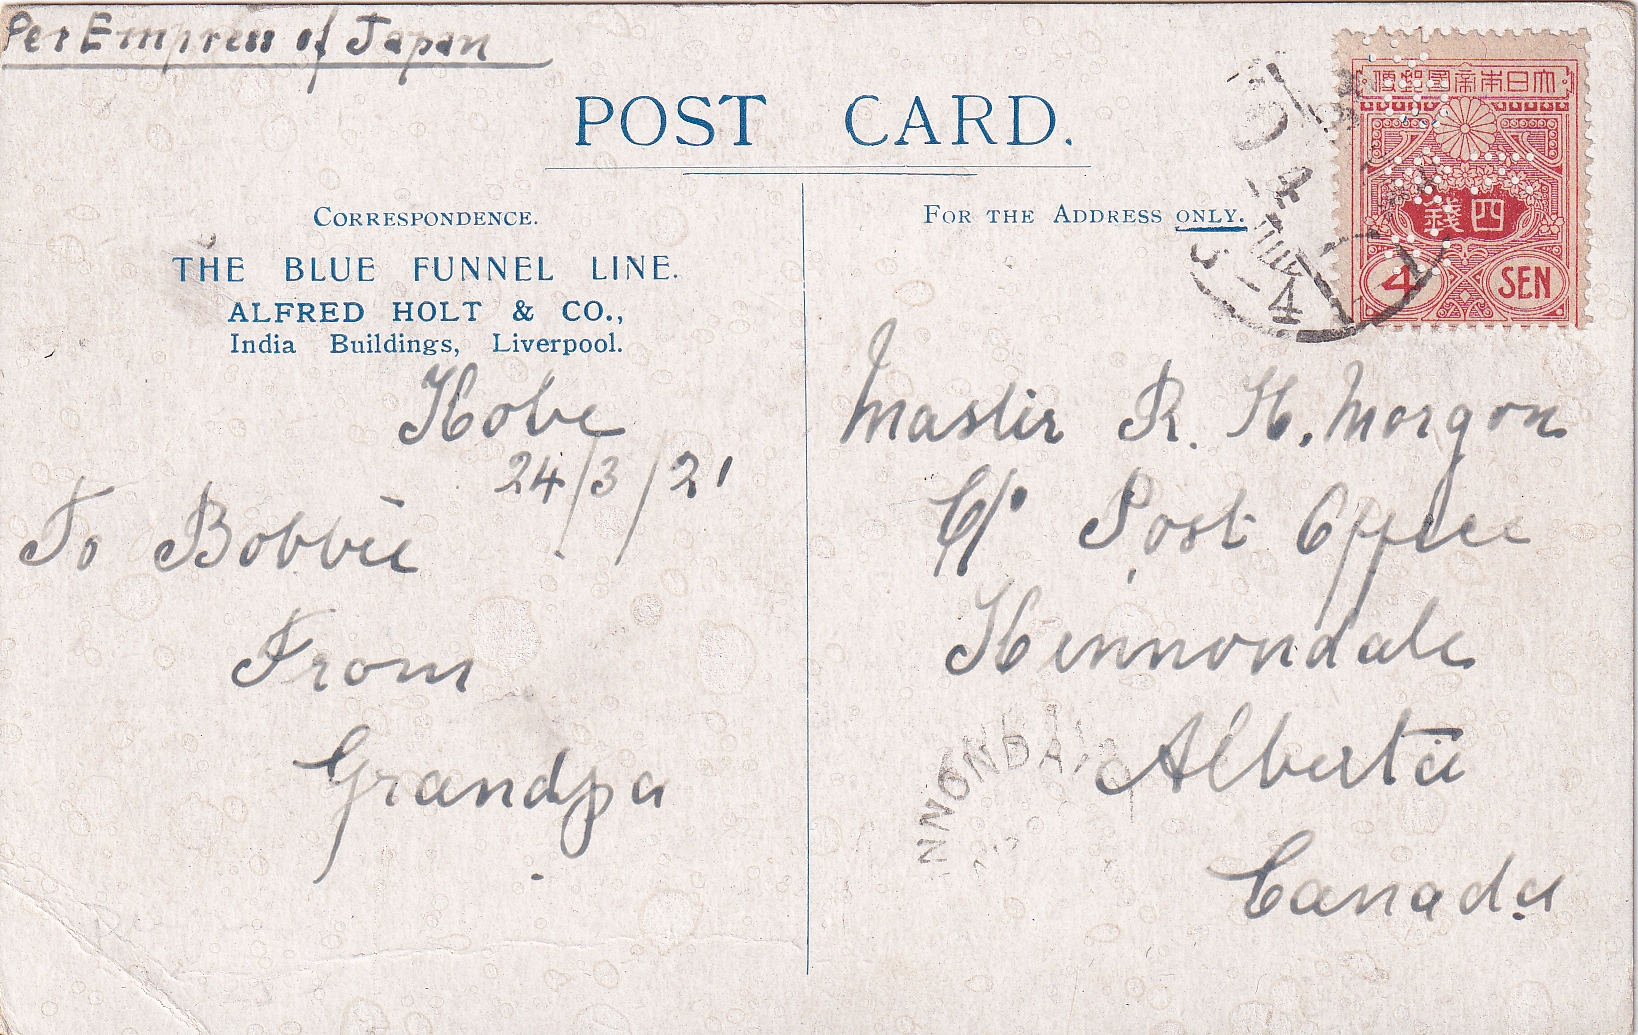 Per Empress of Japan
POST CARD.
CORRESPONDENCE.
FOR THE ADDRESS ONLY.
THE BLUE FUNNEL LINE.
ALFRED HOLT & CO.,
India Buildings, Liverpool.
Kobe
24/3/21
To Bobbie
From
Grandpa
大日本帝國郵便
四錢
4 SEN
Master R. H. Morgan
C/o Post Office
Hennondale
Alberta
Canada
NNONDAL